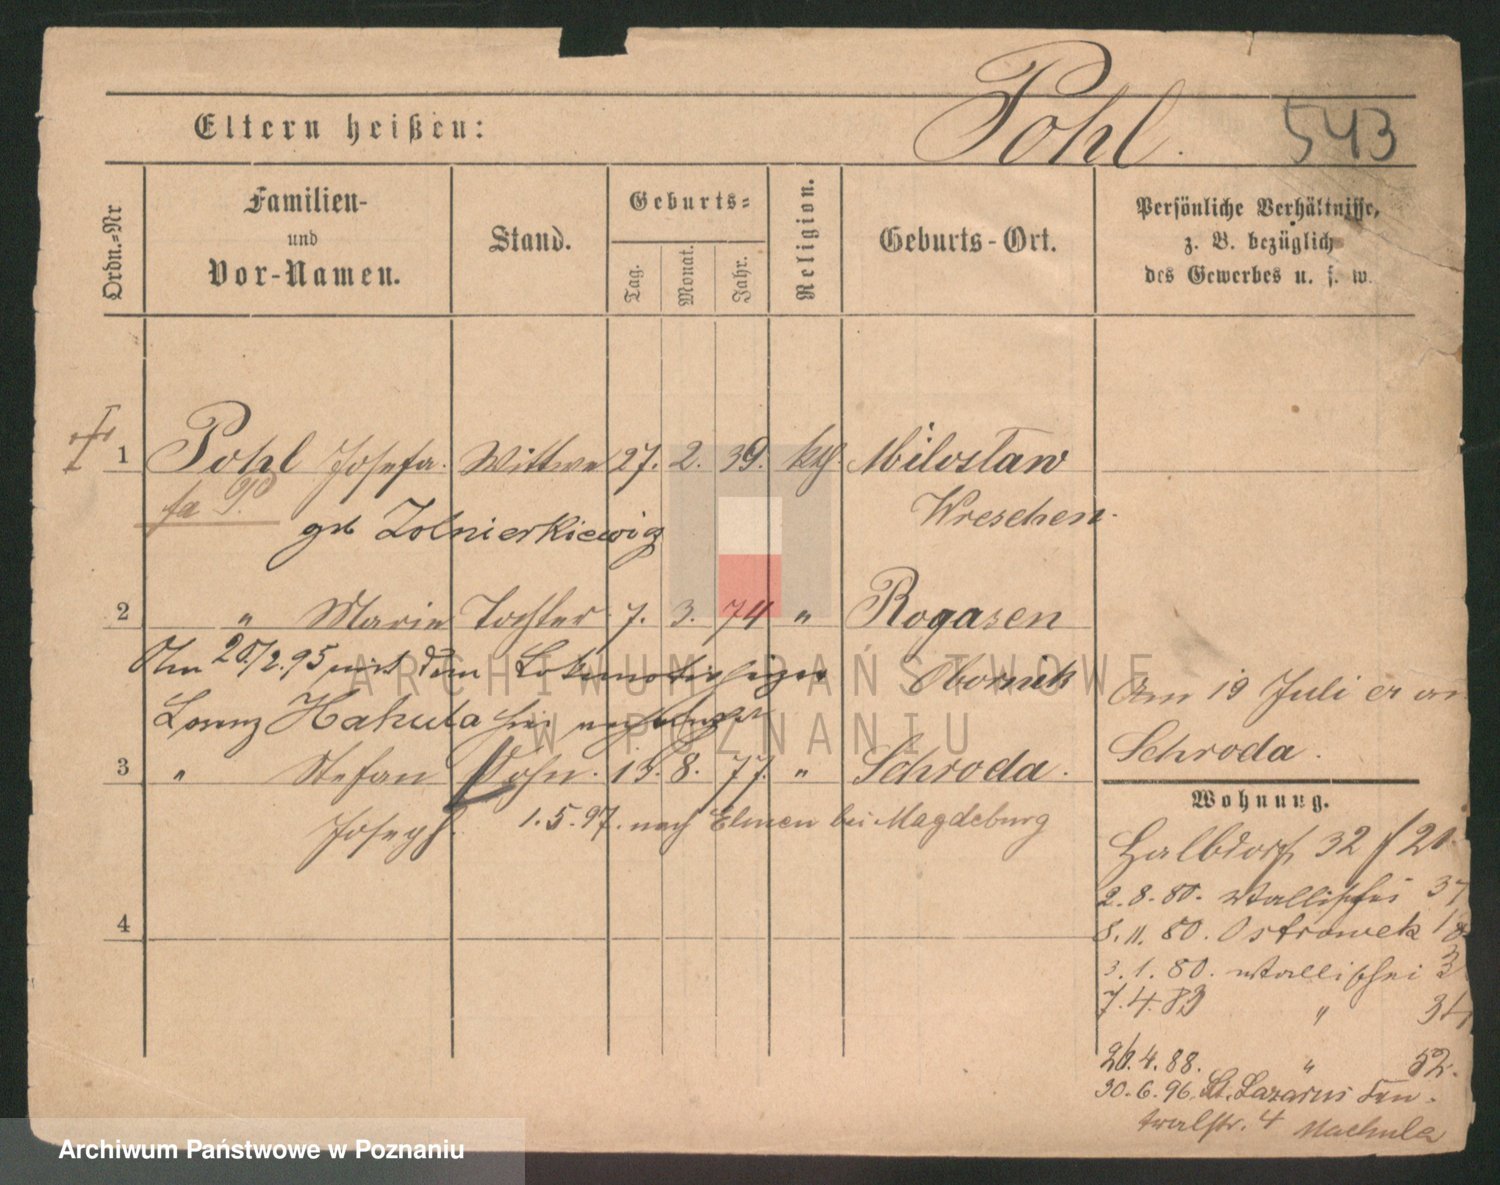 Eltern heißen:
Pohl.
543
Ordn.-Nr
Familien-
und
Vor-Namen.
Stand.
Geburts-
Tag.
Monat.
Jahr.
Religion.
Geburts-Ort.
Persönliche Verhältnisse,
z. B. bezüglich
des Gewerbes u. s. w.
1 Pohl Josefa. Wittwe 27. 2. 39. kath. Miloslaw
Wreschen.
geb Zolnierkiewicz
2 " Marie Tochter 7. 3. 74 " Rogasen
Am 20/2.95 mit dem
Obornik
Lorenz Hakuba
Am 19 Juli er von
Schroda.
3 " Stefan Sohn. 15. 8. 77. " Schroda.
Joseph.
1.5.97. nach Elmen bei Magdeburg
4
Wohnung.
Halbdorf 32
2.8.80. Wallischei 37
8.11.80. Ostrowek
3.1.80. Wallischei 3
7.4.83 " 34
20.4.88. " 52.
30.6.96. St. Lazarus
4
ARCHIWUM PAŃSTWOWE
W POZNANIU
Archiwum Państwowe w Poznaniu